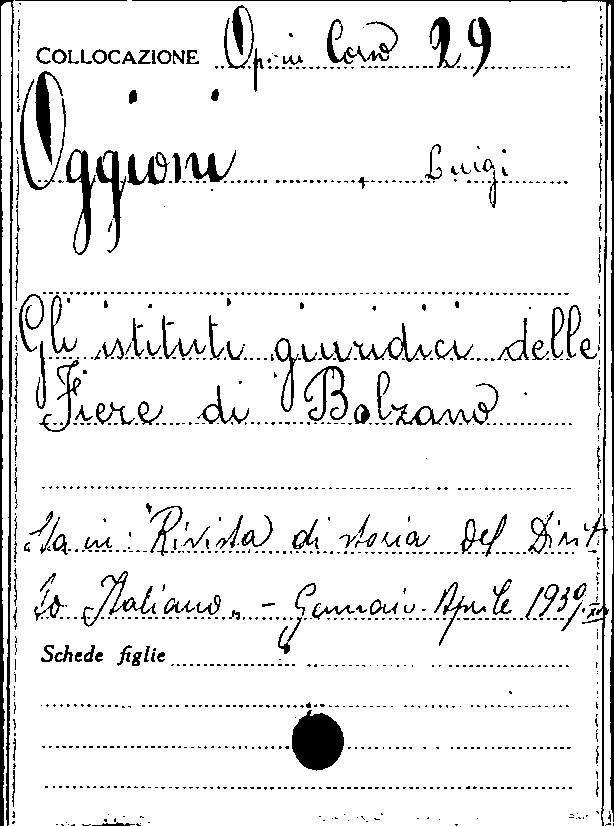 COLLOCAZIONE Op. in Corso 29
Oggioni, Luigi
Gli istituti giuridici delle
Fiere di Bolzano
Sta in: "Rivista di storia del Dirit
to Italiano" - Gennaio-Aprile 1939.XVII
Schede figlie